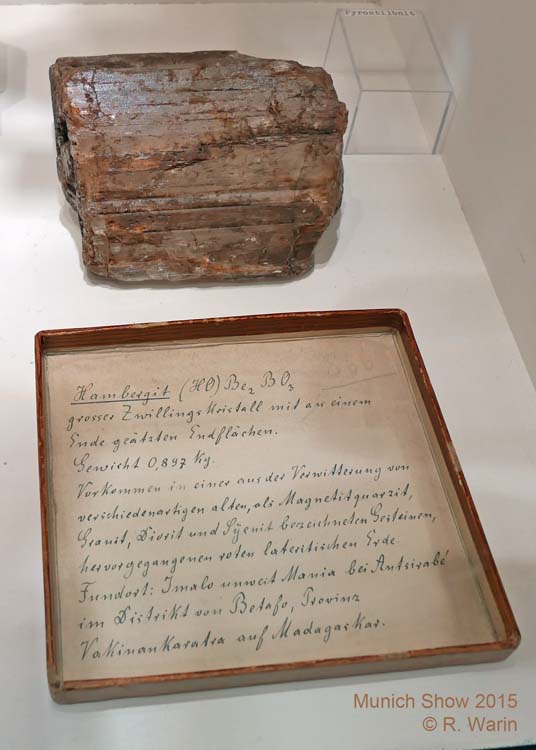 Pyrostilbnit
Hambergit (HO) Be₂ BO₃
grosser Zwillingskristall mit an einem
Ende geätzten Endflächen.
Gewicht 0,897 Kg.
Vorkommen in einer aus der Verwitterung von
verschiedenartigen alten, als Magnetitquarzit,
Granit, Diorit und Syenit bezeichneten Gesteinen,
hervorgegangenen roten lateritischen Erde.
Fundort: Imalo unweit Mania bei Antsirabé
im Distrikt von Betafo, Provinz
Vakinankaratra auf Madagaskar.
Munich Show 2015
© R. Warin